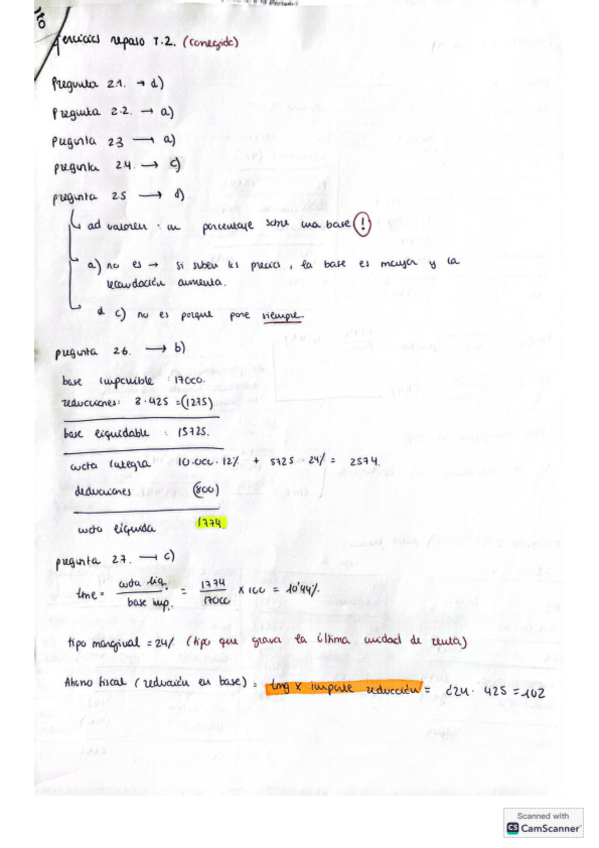 ejercicios repaso T.2. (corregido)
Pregunta 2.1. → d)
Pregunta 2.2. → a)
pregunta 2.3 → a)
pregunta 2.4. → c)
pregunta 2.5 → d)
ad valorem : un porcentaje sobre una base (!)
a) no es → si suben los precios, la base es mayor y la
recaudación aumenta.
c) no es porque pone siempre.
pregunta 2.6. → b)
base imponible : 17000.
reducciones: 3·425 = (1275)
base liquidable : 15725.
cuota íntegra 10.000 · 12% + 5725 · 24% = 2574.
deducciones (800)
cuota líquida 1774.
pregunta 2.7. → c)
tme = cuota liq. / base imp. = 1774 / 17000 × 100 = 10'44%.
tipo marginal = 24% (tipo que grava la última unidad de renta)
Ahorro fiscal (reducción en base) = tmg × importe reducción = 0'24 · 425 = 102
Scanned with
CS CamScanner